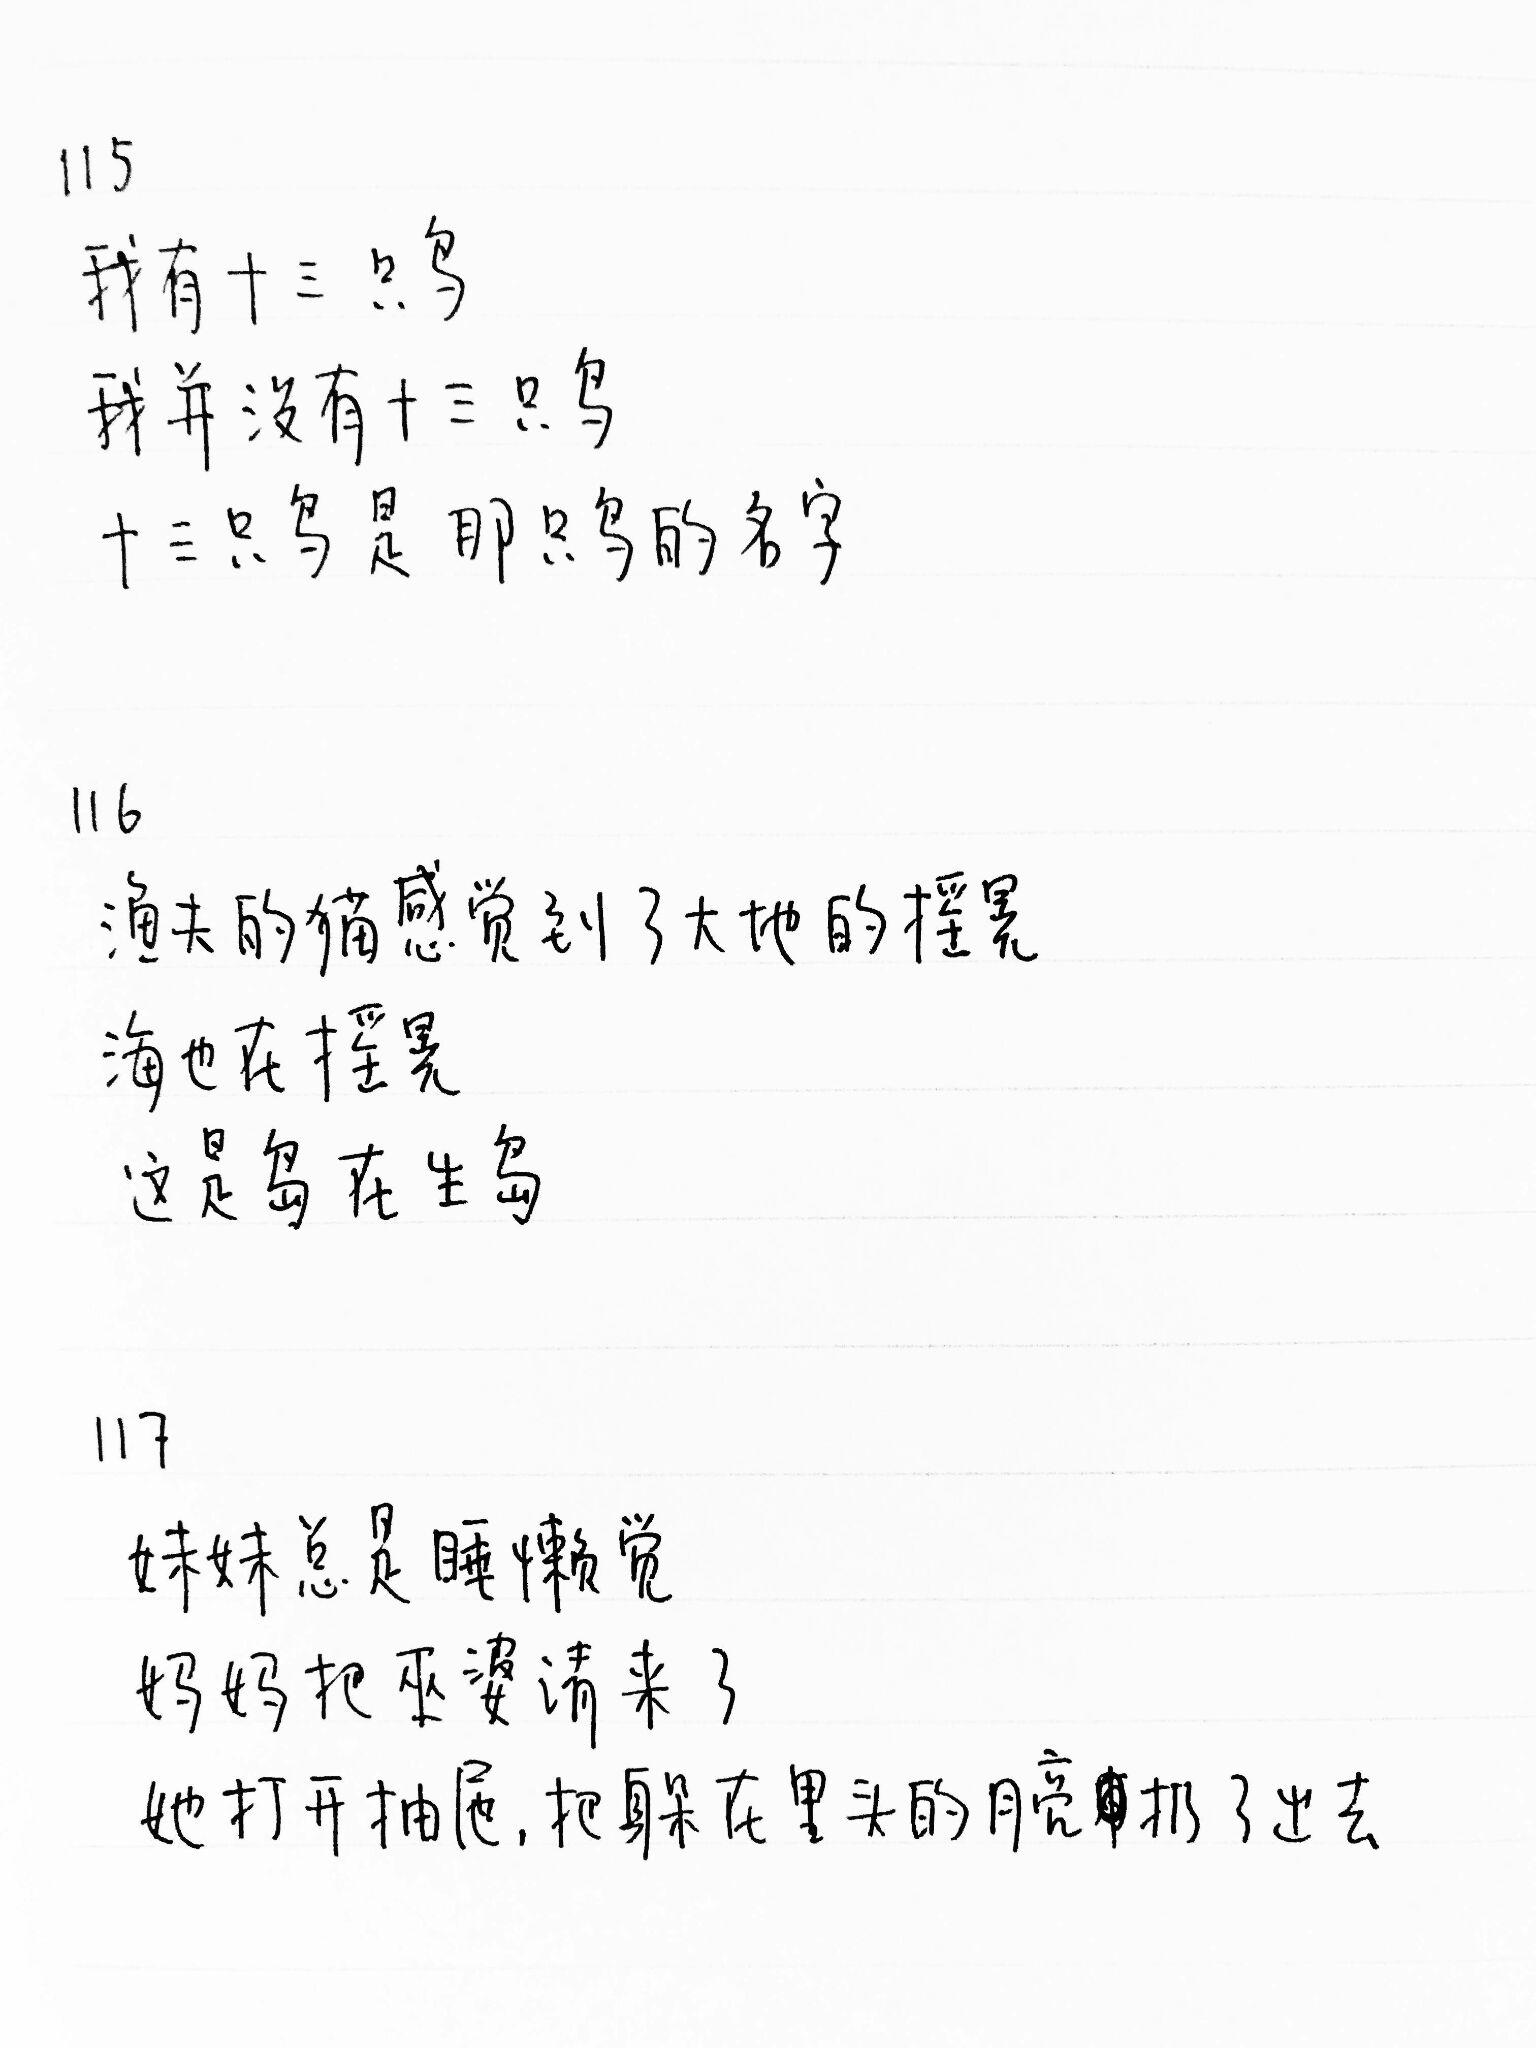 115
我有十三只鸟
我并没有十三只鸟
十三只鸟是那只鸟的名字
116
渔夫的猫感觉到了大地的摇晃
海也在摇晃
这是岛在生岛
117
妹妹总是睡懒觉
妈妈把巫婆请来了
她打开抽屉,把躲在里头的月亮扔了出去